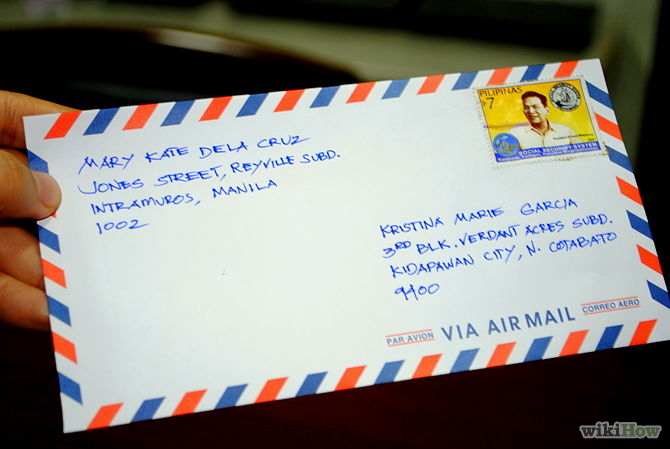 MARY KATE DELA CRUZ
JONES STREET, REYVILLE SUBD.
INTRAMUROS, MANILA
1002
PILIPINAS
₱7
SOCIAL SECURITY SYSTEM
KRISTINA MARIE GARCIA
3RD BLK. VERDANT ACRES SUBD.
KIDAPAWAN CITY, N. COTABATO
9400
PAR AVION VIA AIR MAIL CORREO AEREO
wikiHow